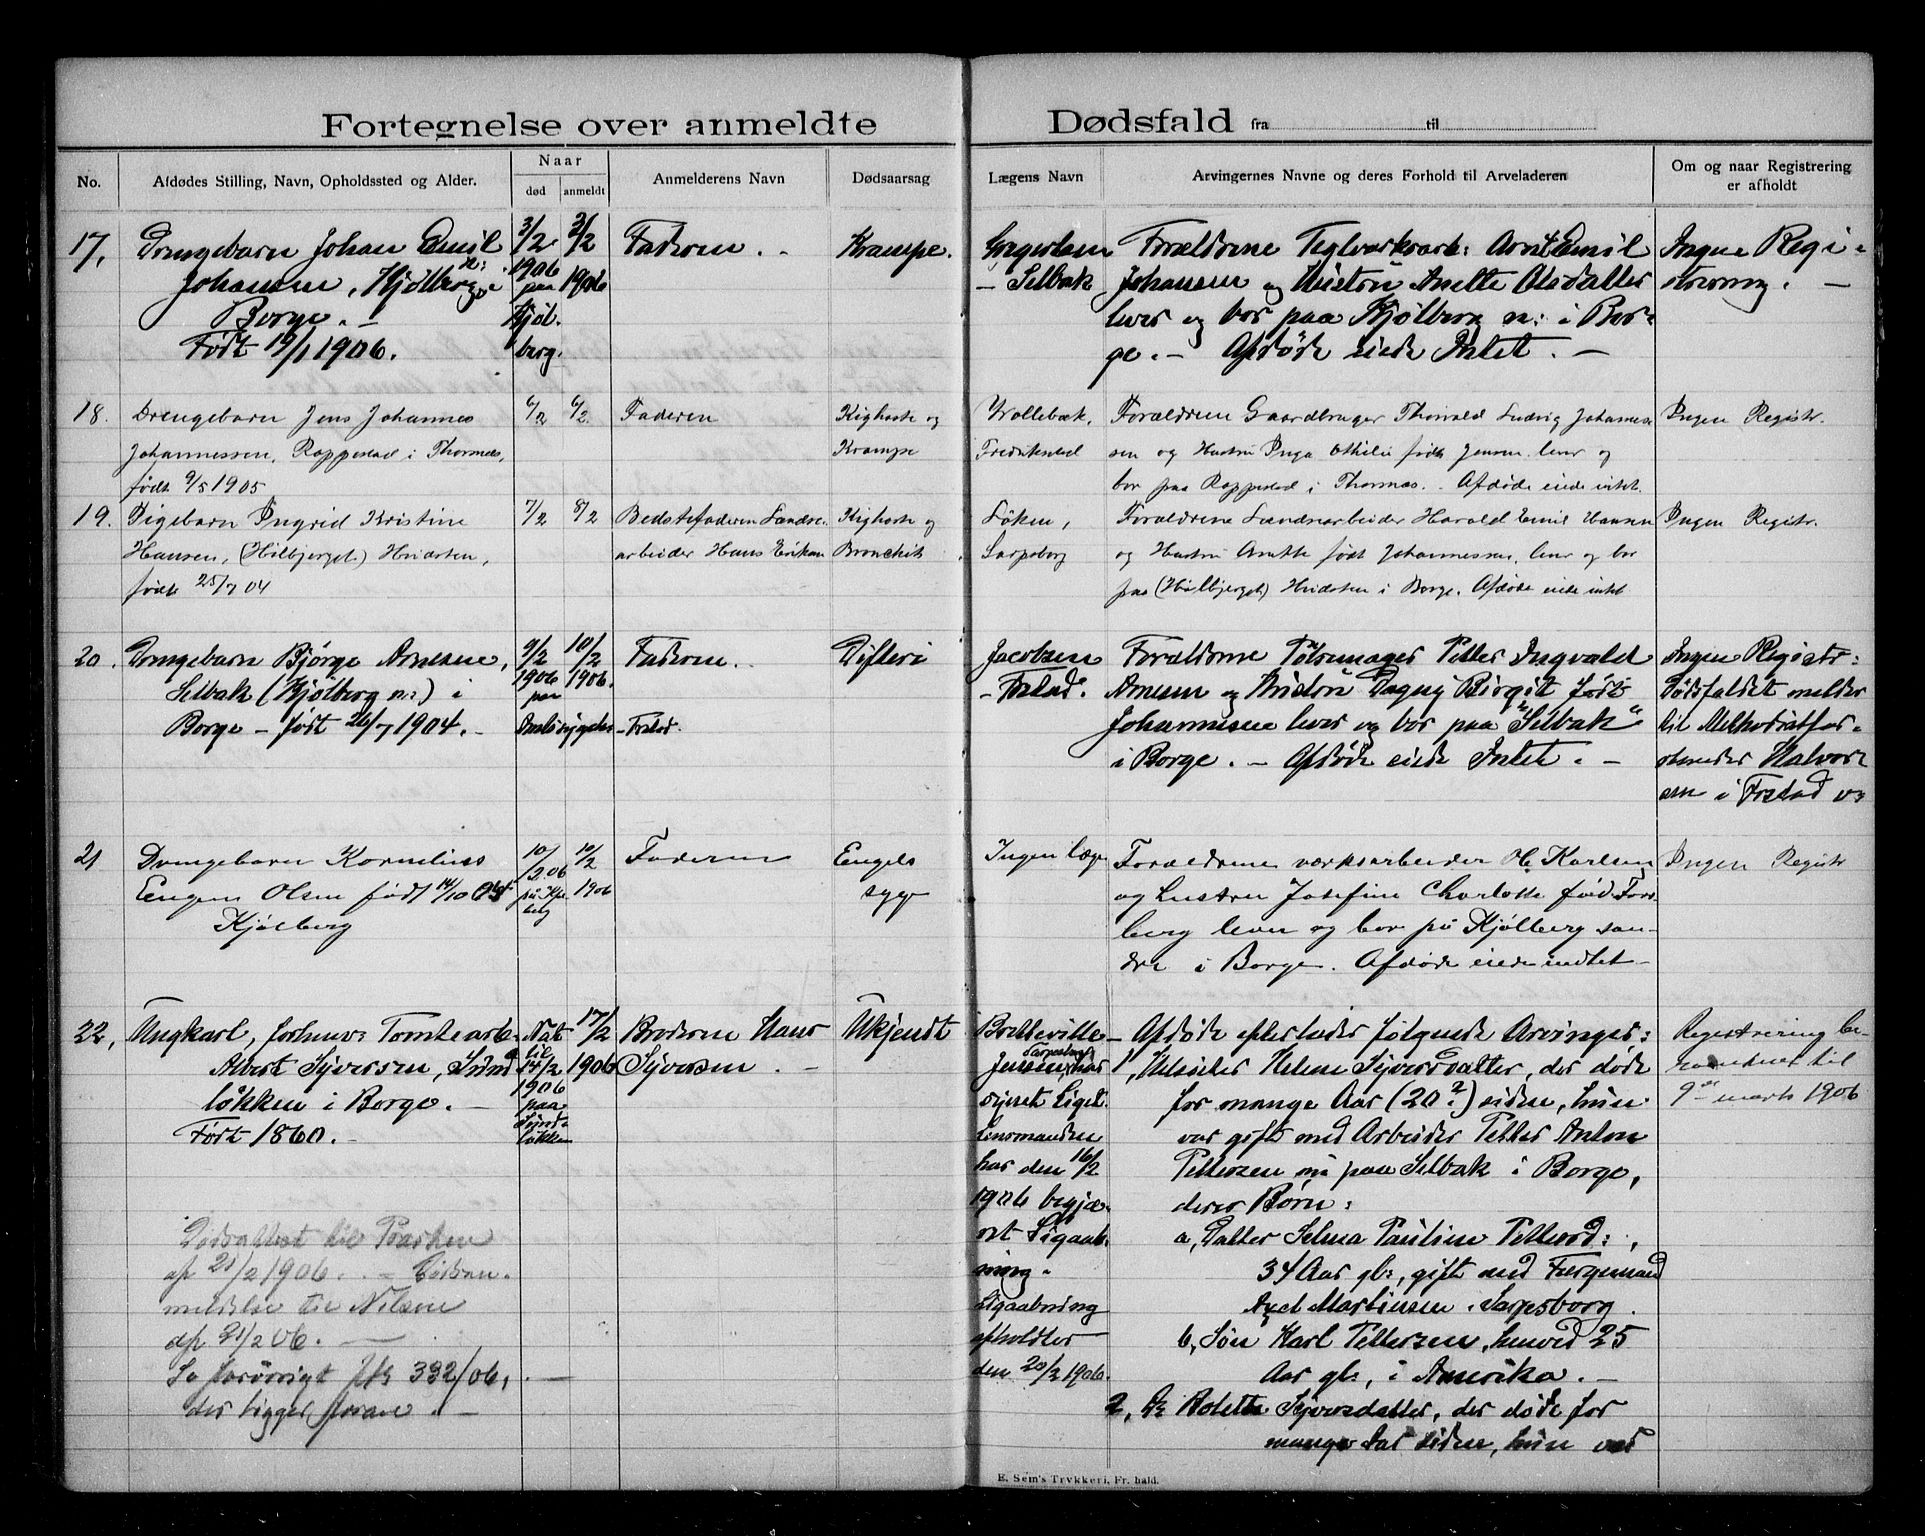 Fortegnelse over anmeldte Dødsfald fra til
No.
Afdødes Stilling, Navn, Opholdssted og Alder.
Naar
død
anmeldt
Anmelderens Navn
Dødsaarsag
Lægens Navn
Arvingernes Navne og deres Forhold til Arveladeren
Om og naar Registrering
er afholdt
17,
Drengebarn Johan Emil
Johansen, Kjölberg n: i
Borge. —
Født 19/1 1906.
3/2
1906
paa
Kjöl-
berg.
3/2
1906
Faderen. -
Krampe.
- Selbak
Forældrene Teglverksarb: Arnt Emil
Johansen og Hustru Anette Olsdatter
lever og bor paa Kjølberg n: i Bor-
ge. — Afdøde eiede Intet. —
Ingen Regi-
strering. —
18.
Drengebarn Jens Johannes
Johannessen, Rappestad i Thorsnes,
født 9/5 1905
6/2
6/2
Faderen
Kighoste og
Krampe
Wollebæk,
Fredrikstad
Forældrene Gaardbruger Thorvald Ludvig Johannes-
sen og Hustru Inga Othilie født Jensen lever og
bor paa Rappestad i Thorsnes. Afdøde eiede intet.
Ingen Registr.
19.
Pigebarn Ingrid Kristine
Hansen, (Hilbjerget) Hvidsten,
født 25/7 04
7/2
8/2
Bedstefaderen Landse-
arbeider Hans Eriksen
Kighoste og
Bronchit
Løken,
Sarpsborg
Forældrene Landsarbeider Harald Emil Hansen
og Hustru Anette født Johannessen, lever og bor
paa (Hilbjerget) Hvidsten i Borge. Afdøde eiede intet
Ingen Registr.
20.
Drengebarn Bjørge Arnesen,
Selbak (Kjølberg n:) i
Borge — født 26/7 1904. —
9/2
1906
paa
10/2
1906.
Faderen.
- Frstad.
Difteri
Jacobsen
- Frstad.
Forældrene Petter Ingvald
Arnesen og Hustru Dagny Birgit født
Johannesen lever og bor paa "Selbak"
i Borge. — Afdøde eiede Intet. —
Ingen Registr:
Dødsfaldet meldes
til Methodistfor-
stander Halvor-
sen i Frstad
21
Drengebarn Kornelius
Eugen Olsen født 14/10 05
Kjølberg
10/2 06
på Kjøl-
berg
10/2
1906
Faderen
Engelsk
syge
Ingen læge
Forældrene værksarbeider Ol. Karlsen
og hustru Josefine Charlotte født Fors-
berg lever og bor på Kjølberg søn-
dre i Borge. Afdøde eiede indtet —
Ingen Registr
22,
Ungkarl, forhenv: Tomtearb:
Albert Syversen, Sund-
løkken i Borge. —
Født 1860. —
Nat
til
14/2
1906
paa
Sund-
løkken
17/2
1906
Broderen Hans
Syversen. -
Ukjendt
Bretteville
Jenssen, Sarpsborg, har
synet Liget.
Lensmanden
har den 16/2
1906 begjæ-
ret Ligaab-
ning.
Ligaabning
afholdtes
den 20/2 1906.
Afdøde efterlader følgende Arvinger:
1, Helsøster Helene Syversdatter, der døde
for mange Aar (20?) siden, hun
var gift med Arbeider Petter Anton
Pettersen nu paa Selbak i Borge,
deres Børn:
a, Datter Selma Pauline Pettersd:,
34 Aar gl:, gift med Færgemand
Axel Martinsen, Sarpsborg.
b, Søn Karl Pettersen, henved 25
Aar gl:, i Amerika. —
2, Do Rolette Syversdatter, der døde for
mange Aar siden, hun var
Registrering be-
rammet til
9de marts 1906
Dødsattest til Præsten
af 21/2 1906. — Dødsan-
meldelse til Nilsen
af 21/2 06. —
Se forøvrigt Jk 332/06,
der ligger foran. —
E. Sem's Trykkeri, Fr. hald.